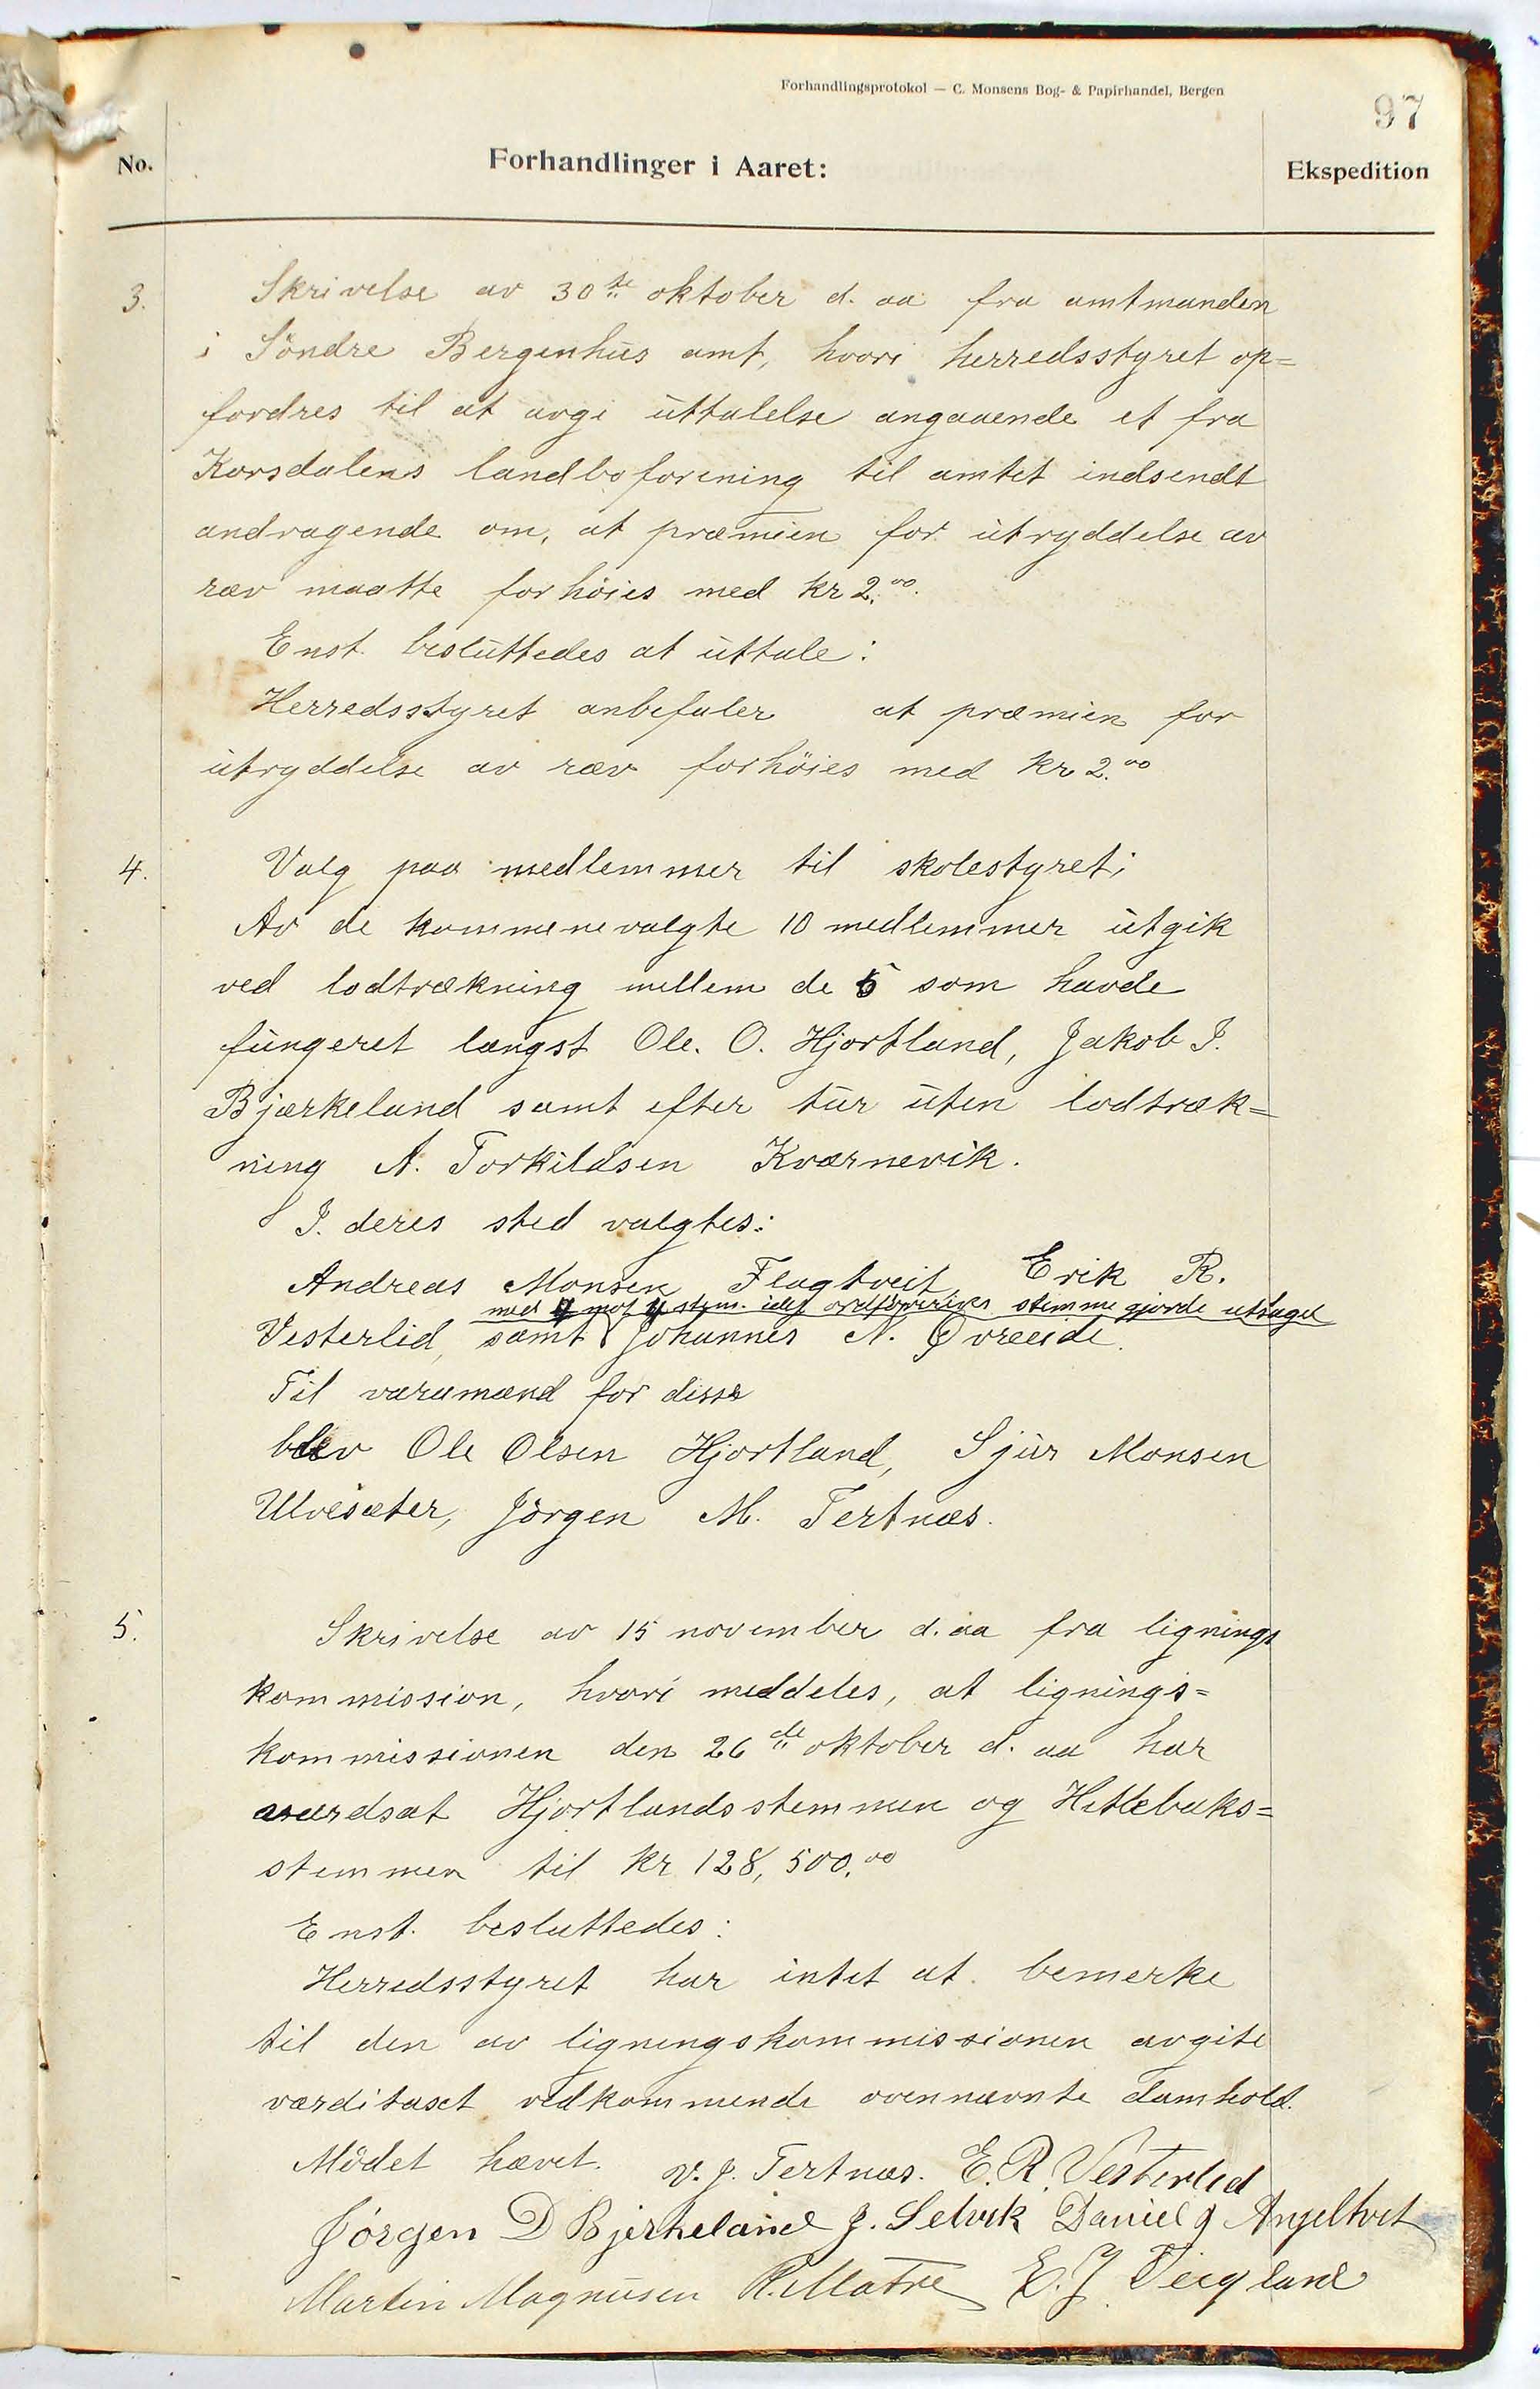 Forhandlingsprotokol — C. Monsens Bog- & Papirhandel, Bergen
97
No.
Forhandlinger i Aaret:
Ekspedition
3. Skrivelse av 30te oktober d. aa fra amtmanden
i Söndre Bergenhus amt, hvori herredsstyret op=
fordres til at avgi uttalelse angaaende et fra
Korsdalens landboforening til amtet indsendt
andragende om, at præmien for utryddelse av
ræv maatte forhöies med kr 2.00.
Enst. besluttedes at uttale:
Herredsstyret anbefaler at præmien for
utryddelse av ræv forhöies med kr 2.00
4. Valg paa medlemmer til skolestyret;
Av de kommunevalgte 10 medlemmer utgik
ved lodtrækning mellem de 5 som havde
fungeret længst Ole. O. Hjortland, Jakob I.
Bjærkeland samt efter tur uten lodtræk=
ning A. Torkildsen Kværnevik.
I. deres sted valgtes:
Andreas Monsen Flagtveit, Erik R.
med mot stem. idet ordförerens stemme gjorde utslaget
Vesterlid, samt Johannes N. Øvreeide.
Til varamænd for disse
blev Ole Olsen Hjortland, Sjur Monsen
Ulvesæter, Jörgen M. Tertnæs.
5. Skrivelse av 15 november d. aa fra lignings
kommission, hvori meddeles, at lignings=
kommissionen den 26de oktober d. aa har
værdsat Hjortlandsstemmen og Hetlebaks=
stemmen til kr 128,500.00
Enst. besluttedes:
Herredsstyret har intet at bemerke
til den av ligningskommissionen avgite
værditaxt vedkommende ovennævnte damhold.
Mödet hævet. V. J. Tertnæs. E. R. Vesterlid
Jörgen D Bjerkeland J. Selvik Daniel J Angeltvet
Martin Magnusen R. Matre E. J. Teigland